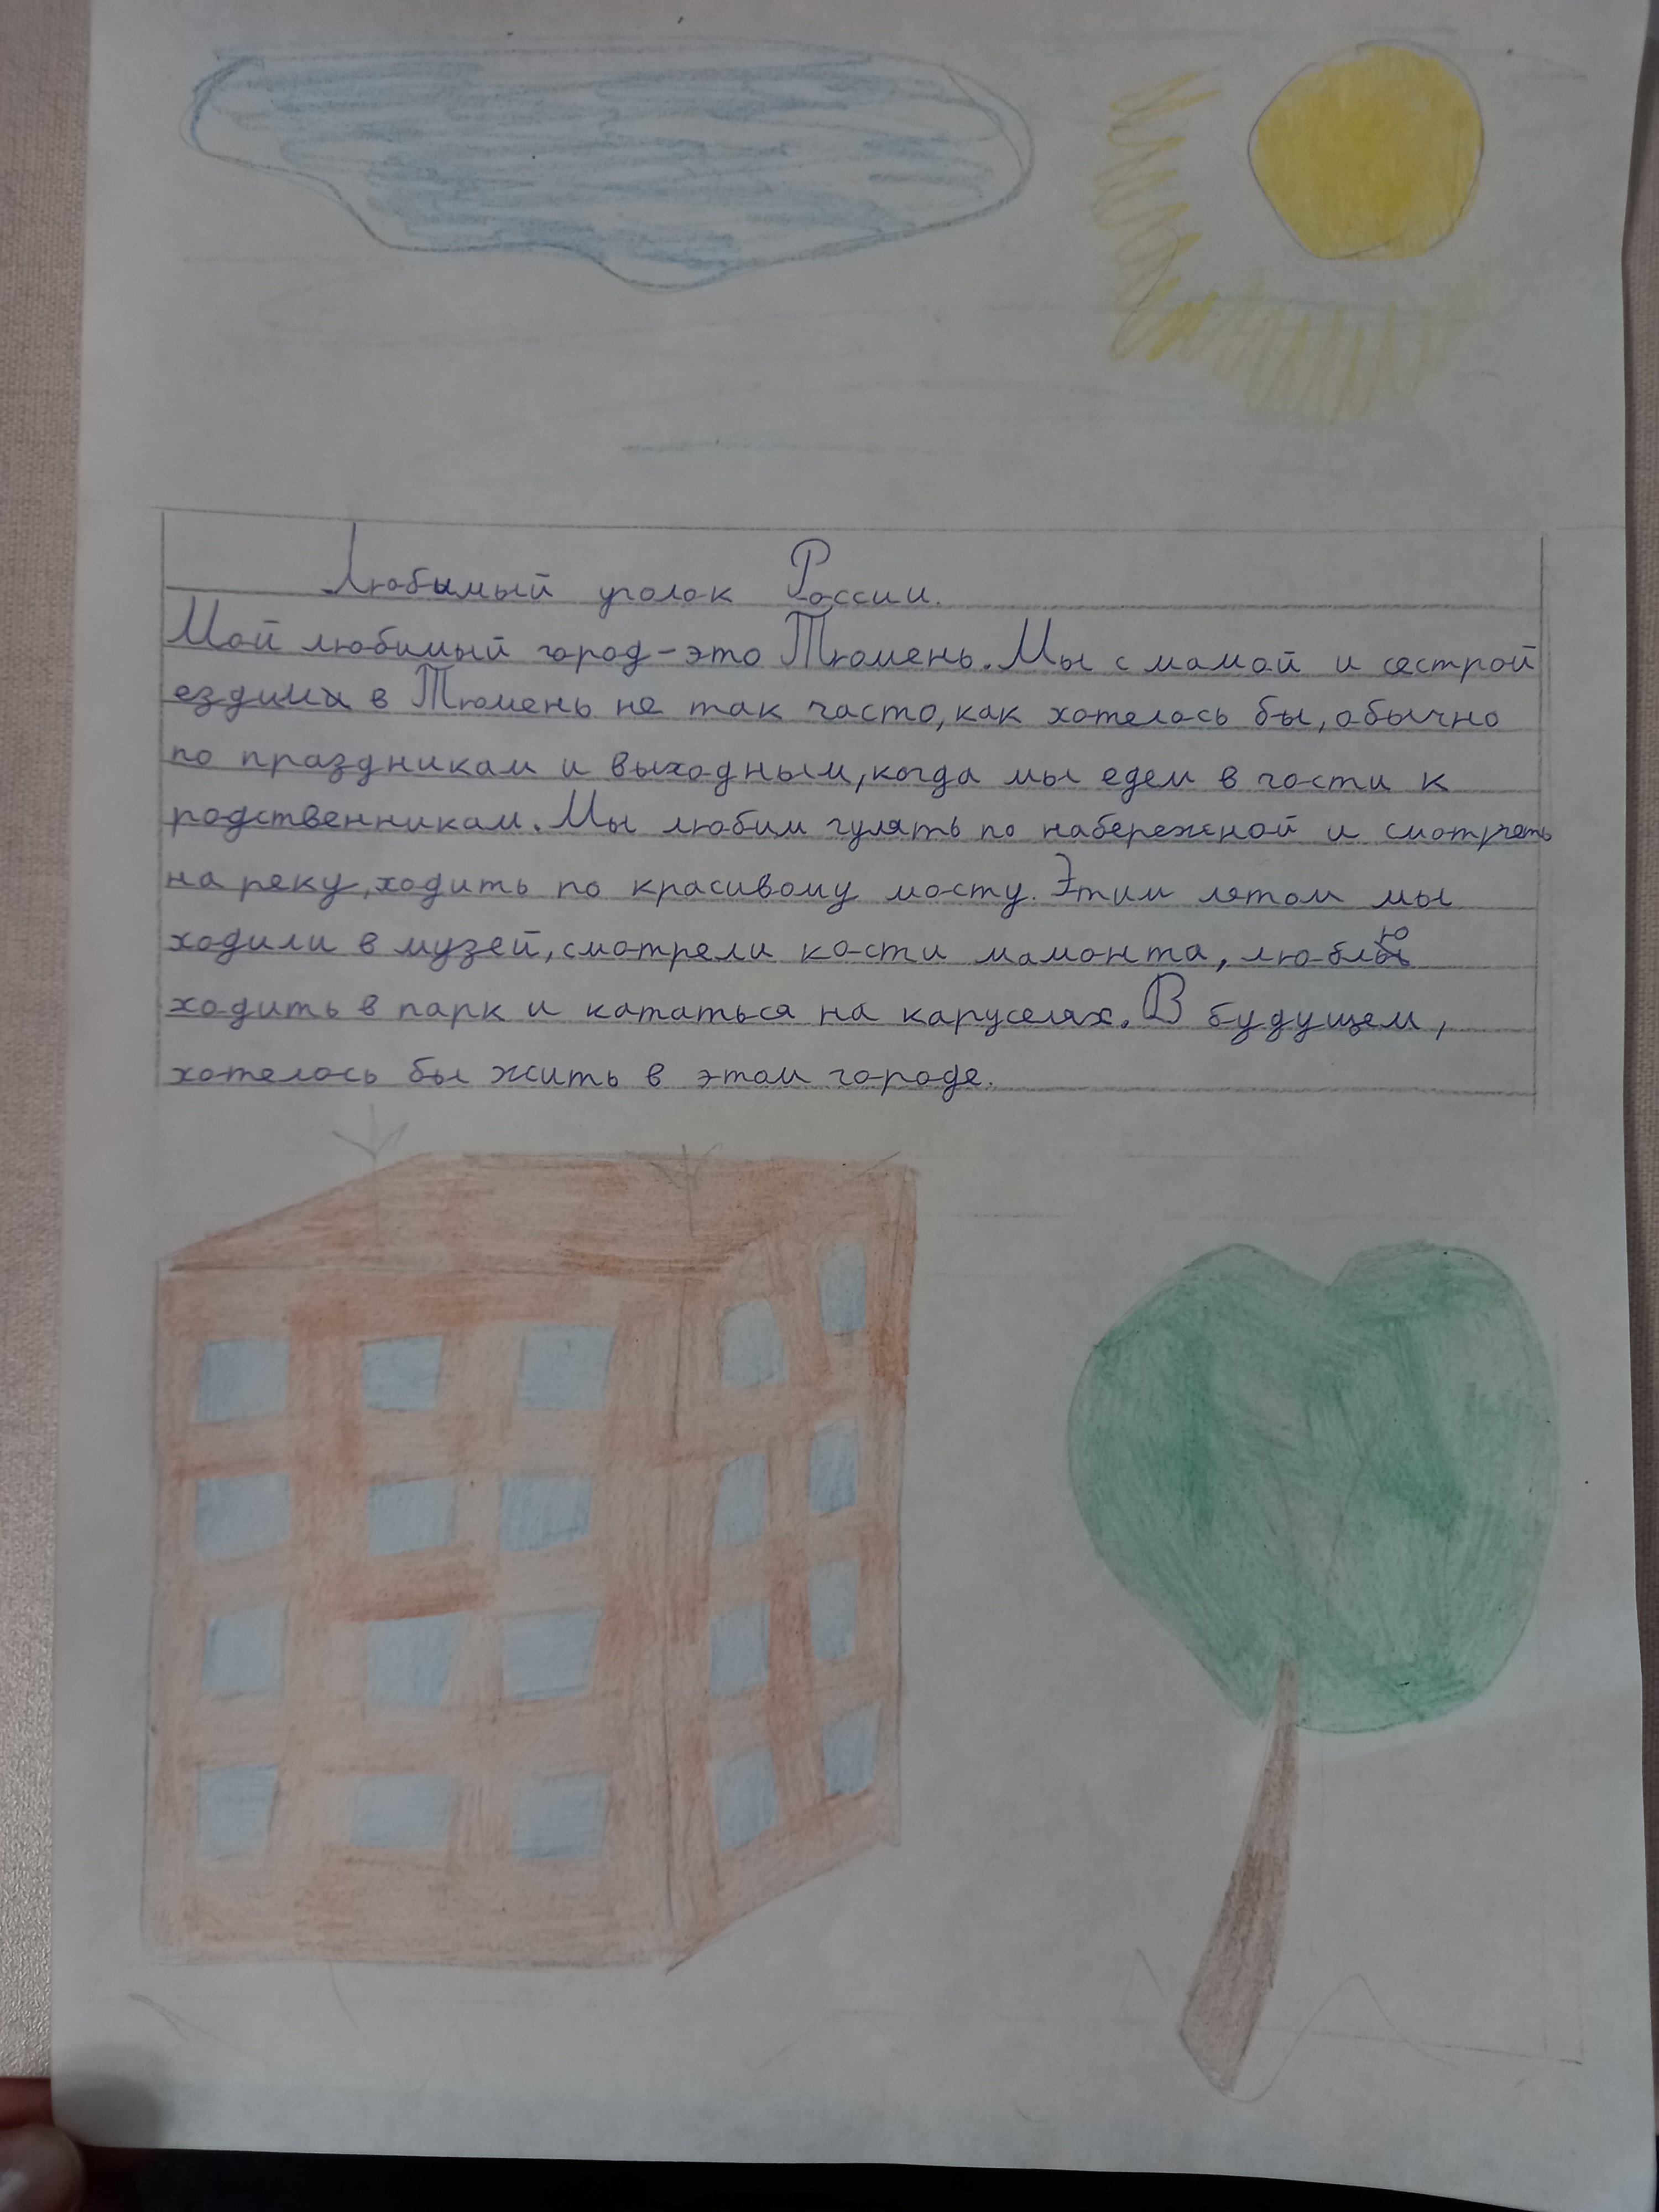 Любимый уголок России.
Мой любимый город-это Тюмень. Мы с мамой и сестрой
ездим в Тюмень не так часто, как хотелось бы, обычно
по праздникам и выходным, когда мы едем в гости к
родственникам. Мы любим гулять по набережной и смотреть
на реку, ходить по красивому мосту. Этим летом мы
ходили в музей, смотрели кости мамонта, люблю
ходить в парк и кататься на каруселях. В будущем,
хотелось бы жить в этом городе.